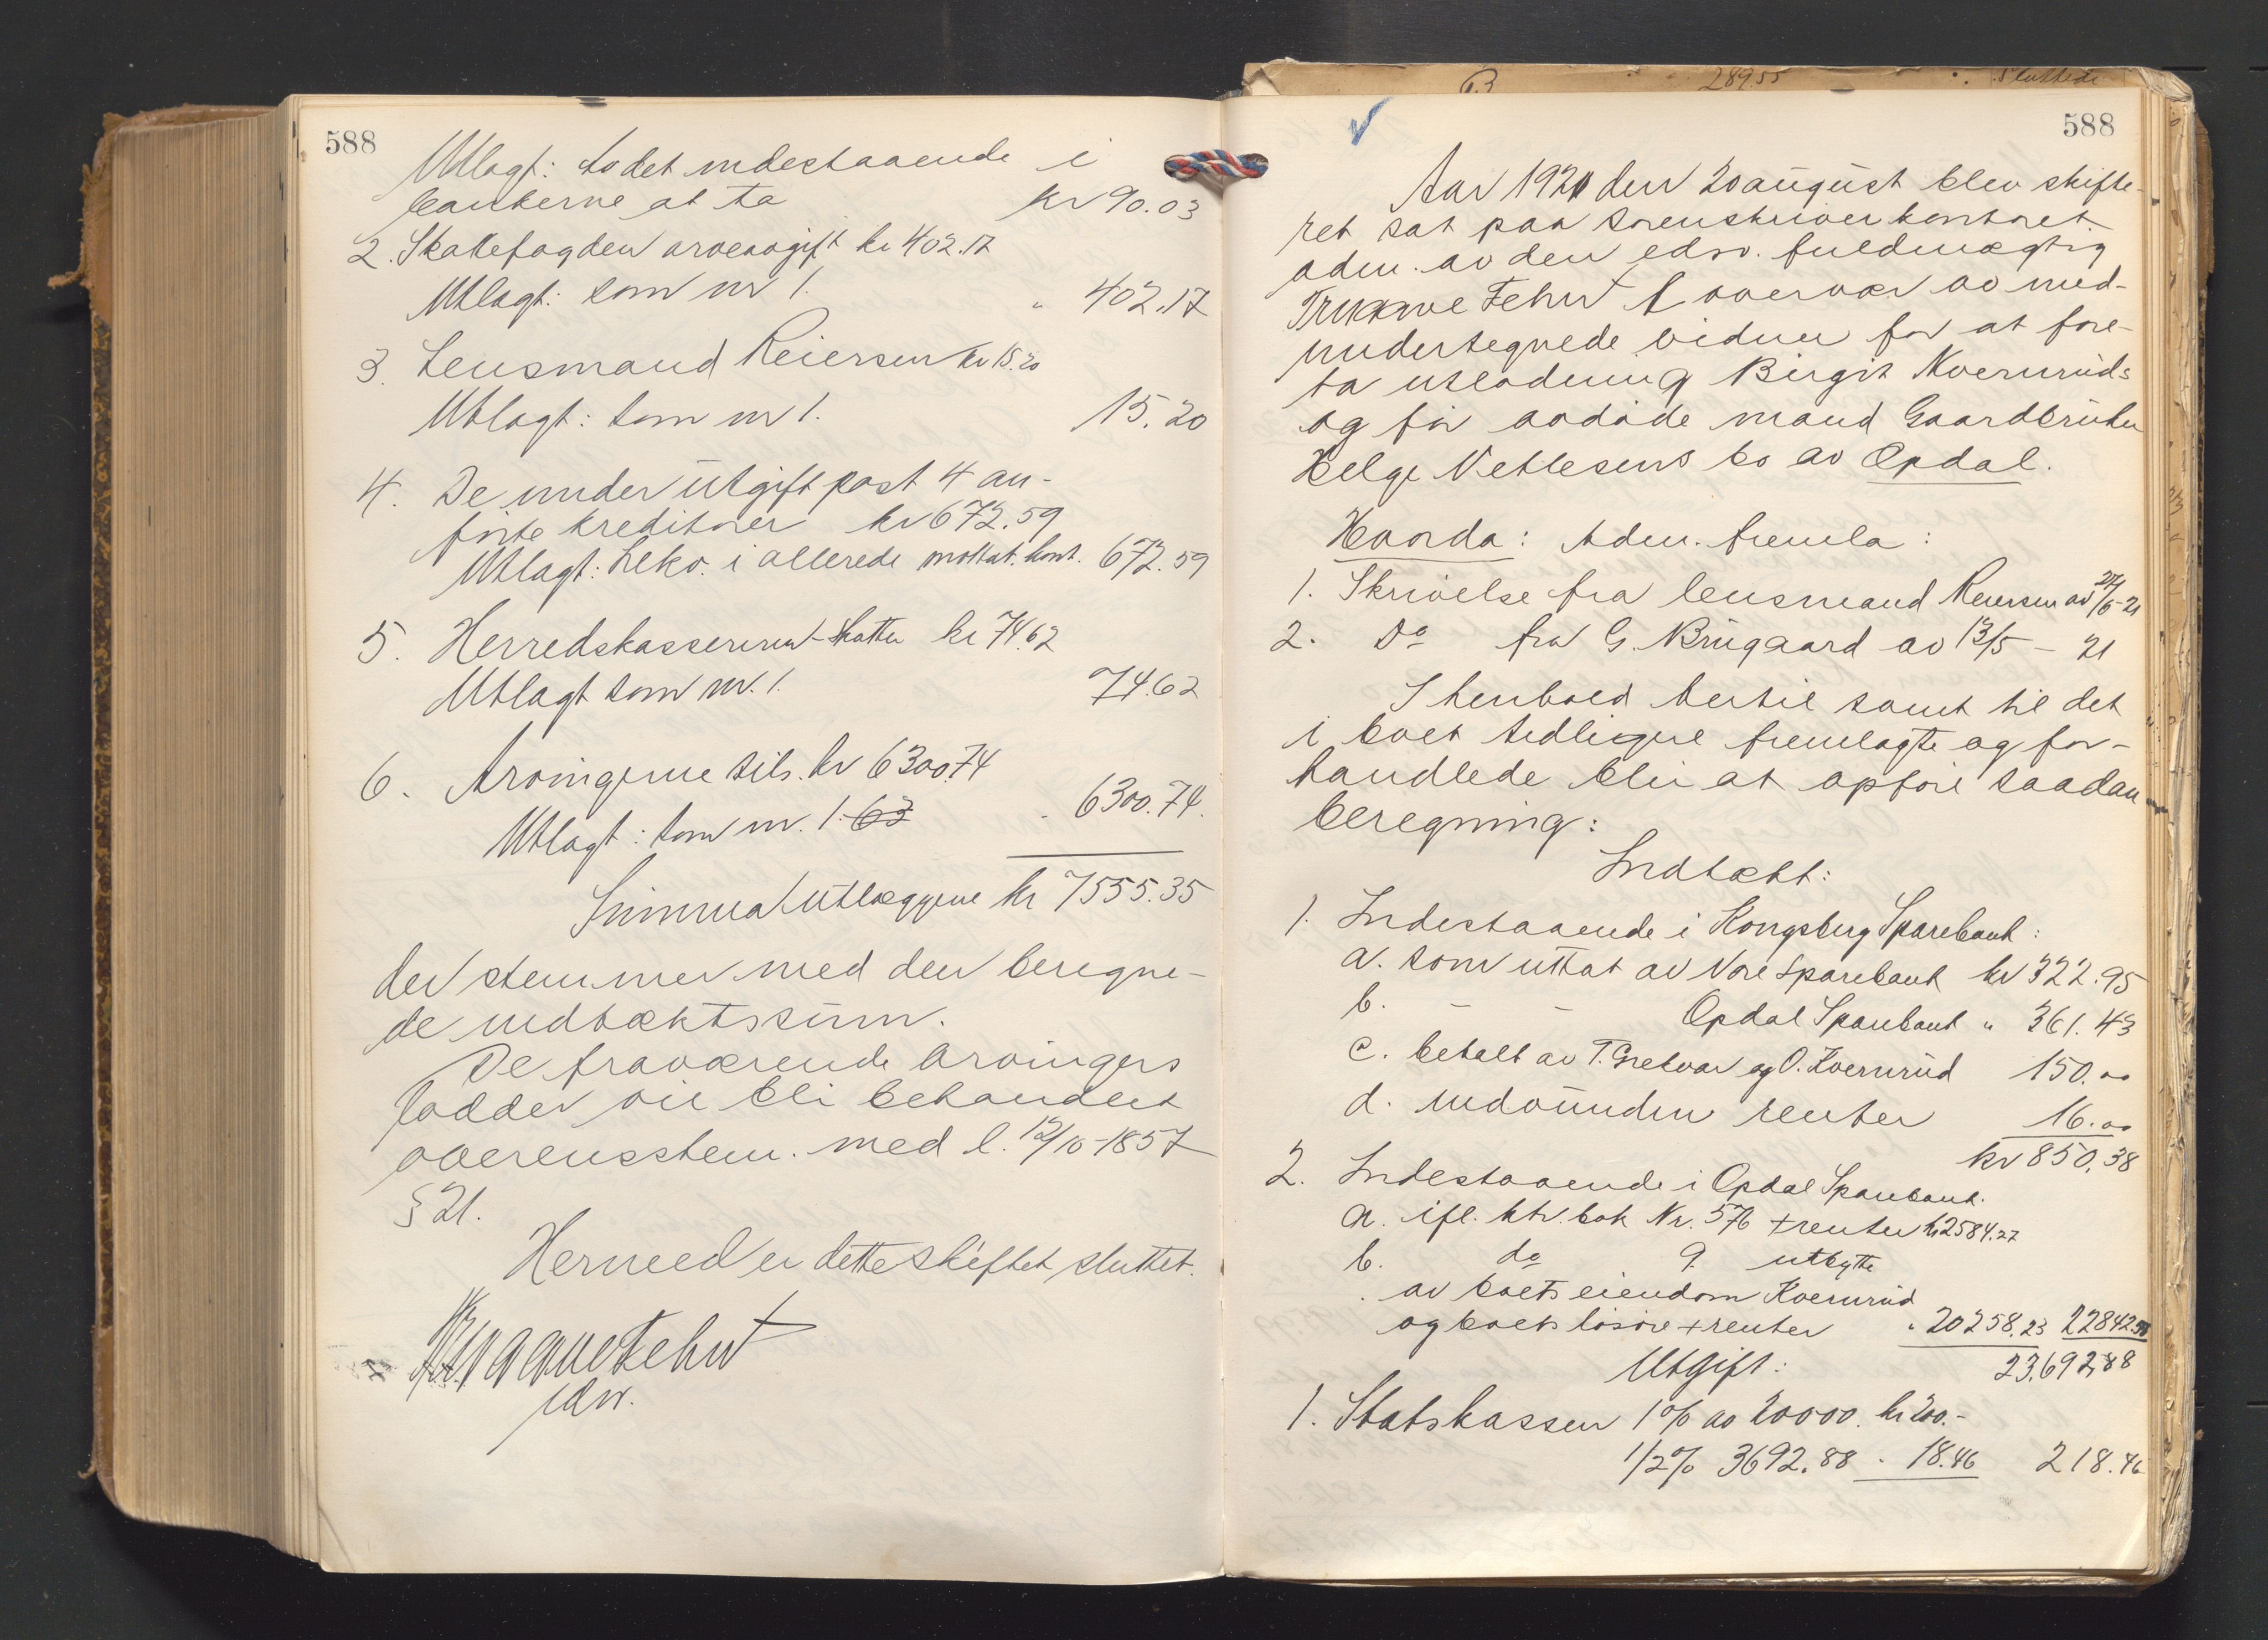 588
Utlagt: to det indestaaende i
bankerne at ta kr 90.03
2. Skattefogden arveavgift kr 402.17
Utlagt: som nr 1. " 402.17
3. Lensmand Reiersen kr 15.20
Utlagt: som nr 1. 15.20
4. De under utgift post 4 an-
förte kreditorer kr 672.59
Utlagt: i allerede mottat. kont. 672.59
5. Herredskassereren - skatter kr 74.62
Utlagt som nr. 1. 74.62
6. Arvingerne tils. kr 6300.74
Utlagt: som nr. 1. 63 . 6300.74.
Summa utlæggene kr 7555.35
der stemmer med den beregne-
de indtæktssum.
De fraværende arvingers
lodder vil bli behandlet
overensstem. med l. 12/10-1857
§ 21.
Hermed er dette skiftet sluttet.
Trygve Fehn
edsv.
63 28955 Sluttede
588
Aar 1921 den 20 august blev skifte-
ret sat paa sorenskriverkontoret
adm. av den edsv. fuldmægtig
Trygve Fehn i overvær av med-
undertegnede vidner for at fore-
ta utlodning Birgit Kvernruds
og før avdøde mand Gaardbruker
Helge Netlesens bo av Opdal.
Hvorda: Adm. fremla:
1. Skrivelse fra lensmand Reiersen av 24/6-21
2. Do fra G. Brugaard av 13/5 - 21
I henhold hertil samt til det
i boet tidligere fremlagte og for-
handlede blir at opføre saadan
beregning:
Indtækt:
1. Indestaaende i Kongsberg Sparebank:
a. som uttat av Nore Sparebank kr 322.95
b. - - Opdal Sparebank " 361.43
c. betalt av T. Gretvar og O. Kvernrud 150.00
d. indvunden renter 16.00
kr 850.38
2. Indestaaende i Opdal Sparebank.
a. ifl. ktr. bok Nr. 576 + renter kr 2584.27
b. do 9. utbytte
av boets eiendom Kvernrud
og boets løsøre + renter " 20258.23 22842.50
23.692.88
Utgift:
1. Statskassen 1 % av 20000. kr 200.-
1/2 % 3692.88 . 18.46 218.46